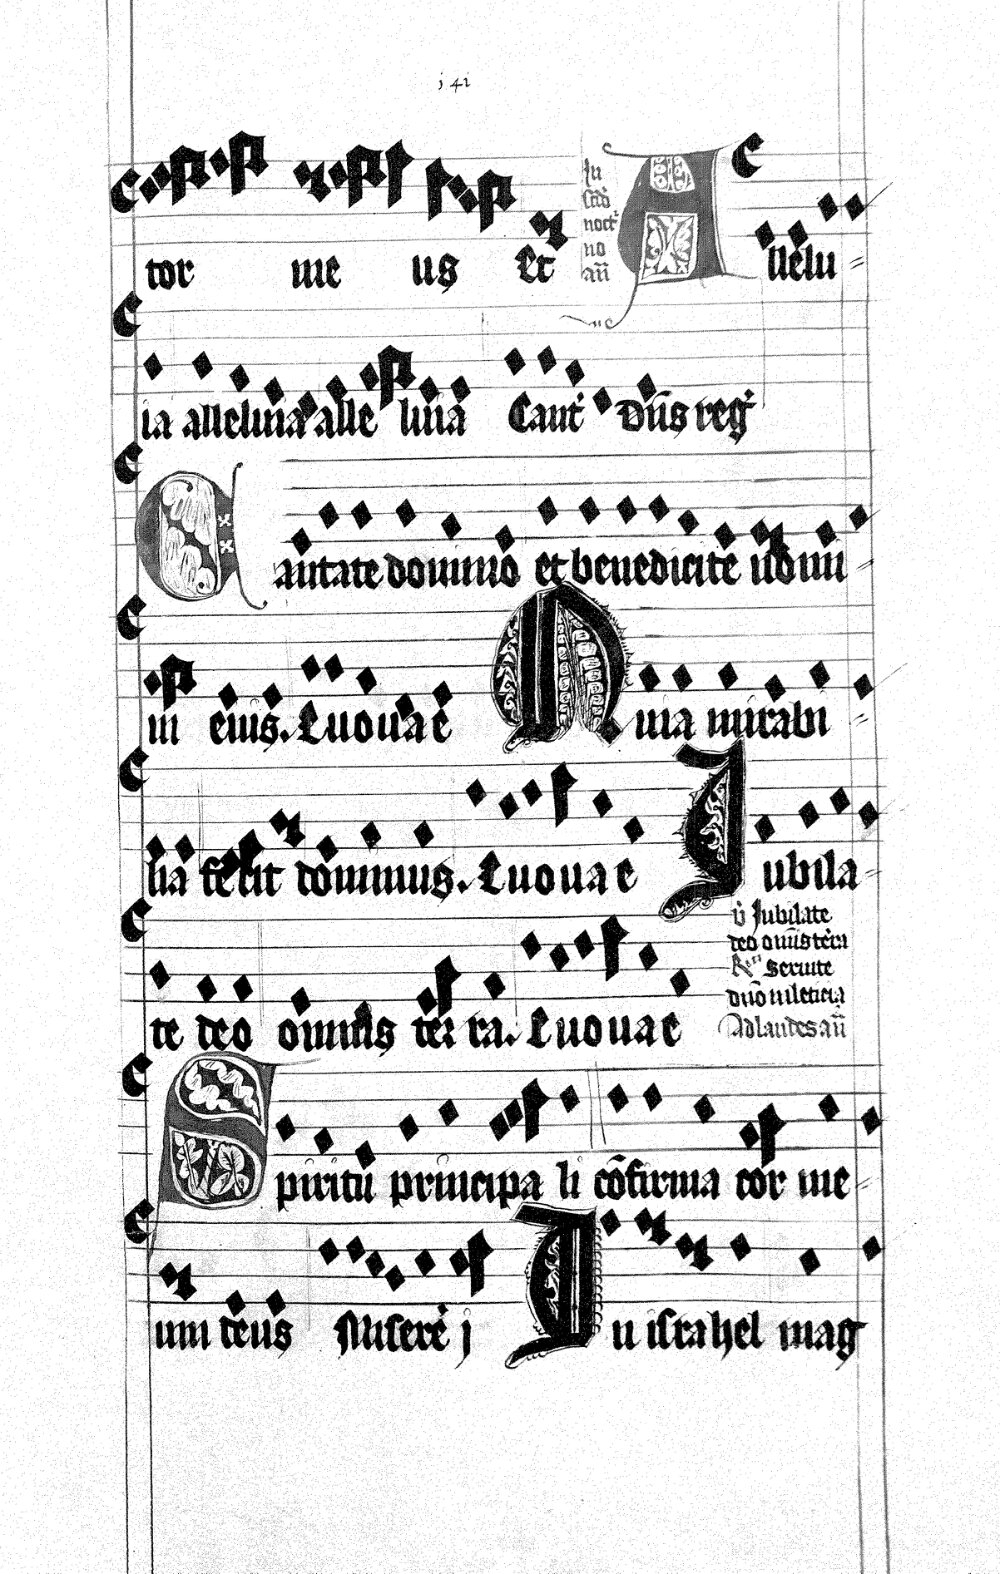 142
tor me us Et
In
scdo
noct
no
an̄
A llelu
ia alleluia alle luia Cant' Dn̄s reg'
C antate domino et benedicite nomi
ni eius. Euouae Q uia mirabi
lia fecit dominus. Euouae J ubila
te deo omnis ter ra. Euouae
v̄ Jubilate
deo om̄is terra
Rm Seruite
dn̄o in leticia
Ad laudes an̄
S piritu principa li cōfirma cor me
um deus Misere j I n israhel mag